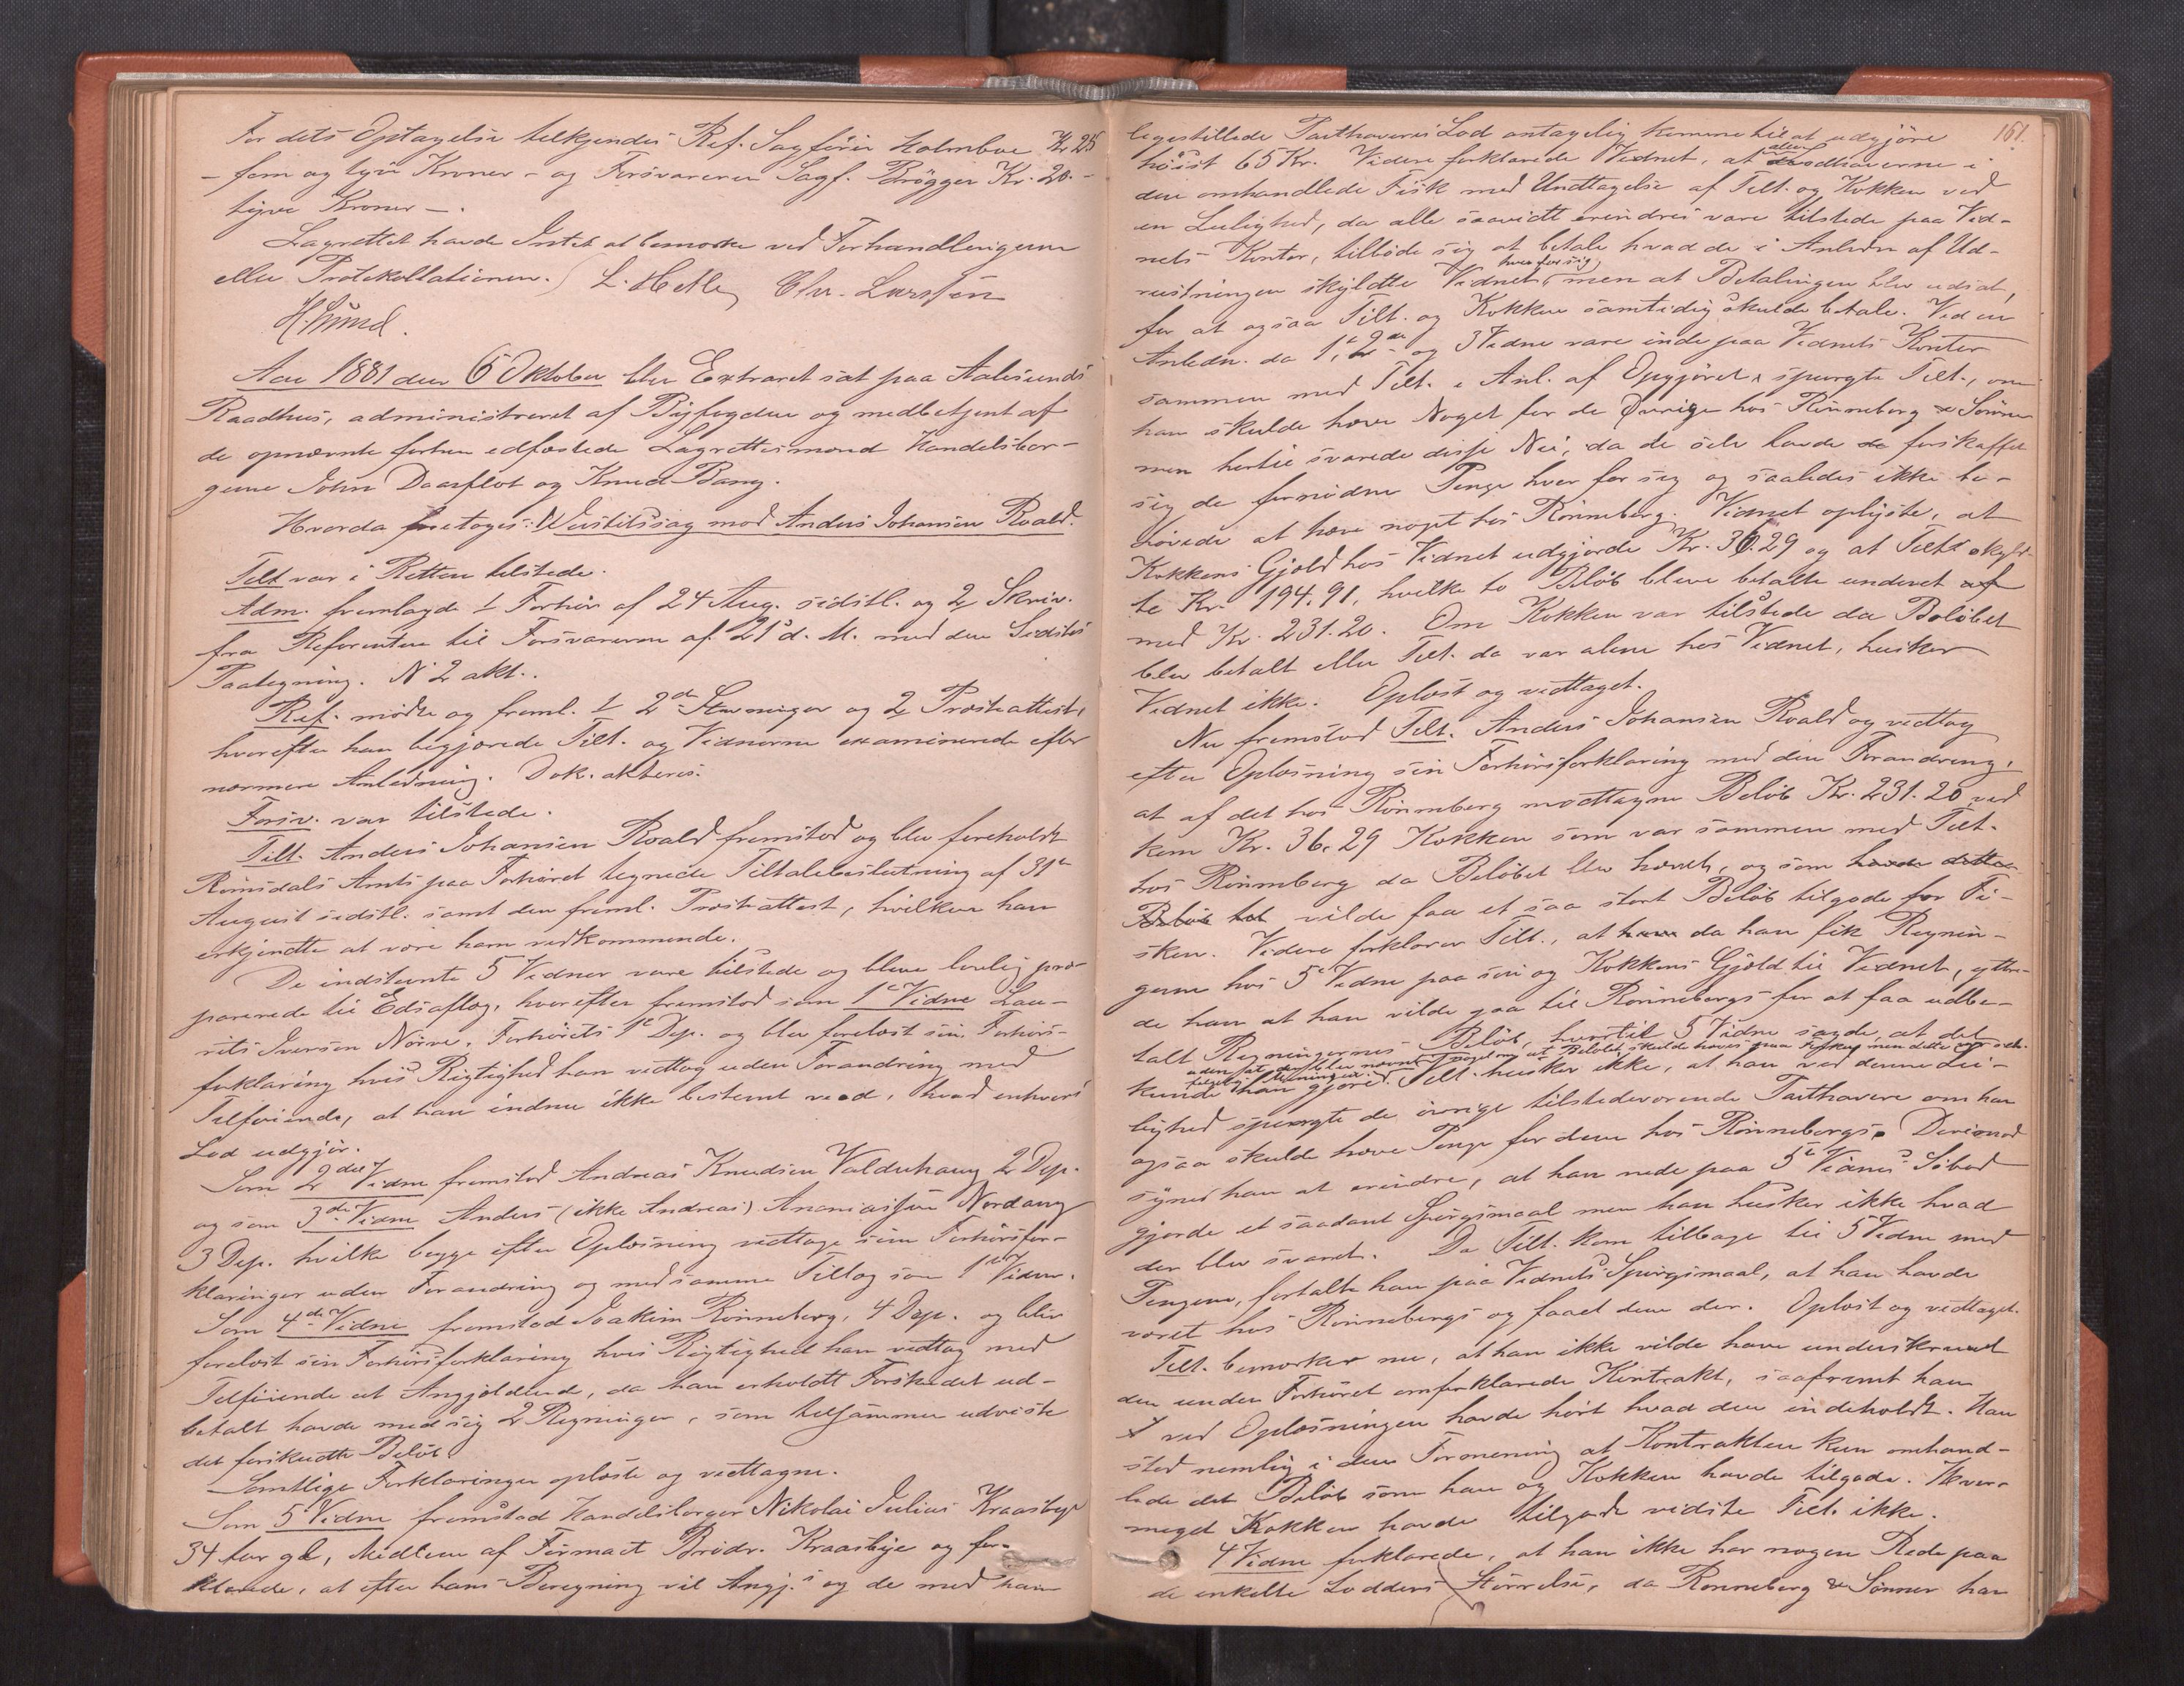 For dets Optagelse tilkjendes Ref. Sagfører Holmboe Kr. 25
- fem og tyve Kroner - og Forsvareren Sagf. Brøgger Kr. 20. -
tyve Kroner -.
Lagrettet havde Intet at bemærke ved Forhandlingerne
eller Protokollationen. L. Hetle Chr. Larssen
H. Strand.
Aar 1881 den 6 Oktober blev Extraret sat paa Aalesunds
Raadhus, administreret af Byfogden og medbetjent af
de opnævnte forhen edfæstede Lagrettesmænd Handelsbor-
gerne John Daasflot og Knud Bang.
Hvorda foretoges: Justitssag mod Anders Johansen Roald.
Tilt var i Retten tilstede.
Adm. fremlagde 1 Forhør af 24 Aug. sidstl. og 2 Skriv.
fra Referenten til Forsvareren af 21 d. M. med den Sidstes
Paategning. N 2 akt..
Ref. mødte og freml. 1 2de Stævninger og 2 Præsteattest,
hvorefter han begjærede Tilt. og Vidnerne examinerede efter
nærmere Anledning. Dok. akteres.
Forsv. var tilstede.
Tilt. Anders Johansen Roald fremstod og blev foreholdt
Romsdals Amts paa Forhøret tegnede Tiltalebeslutning af 31te
August sidstl. samt den freml. Præsteattest, hvilken han
erkjendte at være ham vedkommende.
De indstevnte 5 Vidner vare tilstede og bleve lovlig præ-
parerede til Edsaflæg, hvorefter fremstod som 1e Vidne Lau-
rits Iversen Nørve, Forhørets 1e Dep. og blev forelæst sin Forhørs-
forklaring hvis Rigtighed han vedtog uden Forandring med
Tilføiende, at han endnu ikke bestemt veed, hvad enhvers
Lod udgjør.
Som 2det Vidne fremstod Andreas Knudsen Valderhaug 2 Dep.
og som 3die Vidne Anders (ikke Andreas) Ananiassen Nordang
3 Dep. hvilke begge efter Oplæsning vedtoge sin Forhørsfor-
klaringer uden Forandring og med samme Tillæg som 1e Vidne.
Som 4de Vidne fremstod Joakim Rønneberg, 4 Dep. og blev
forelæst sin Forhørsforklaring hvis Rigtighed han vedtog med
Tilføiende at Angjældende, da han erholdt Forskudet ud-
betalt havde med sig 2 Regninger, som tilsammen udviste
det forskudte Beløb.
Samtlige Forklaringer oplæste og vedtagne.
Som 5 Vidne fremstod Handelsborger Nikolai Julius Kraasbye
34 Aar gl, Medlem af Firmaet Brødr. Kraasbye og for-
klarede, at efter hans Beregning vil Angj.s og de med ham
161.
ligestillede Parthaveres Lod antagelig komme til at udgjøre
høist 65 Kr. Videre forklarede Vidnet, at Lodhaverne i
den omhandlede Fisk med Undtagelse af Tilt. og Kokken ved
en Leilighed, da alle saavidt erindres vare tilstede paa Vid-
nets Kontor, tilbøde sig at betale hvad de i Anledn af Ud-
hver for sig
rustningen skyldte Vidnet, men at Betalingen blev udsat,
for at ogsaa Tilt. og Kokken samtidig skulde betale. Ved en
Anledn. da 1e, 2de og 3 Vidne vare inde paa Vidnets Kontor
sammen med Tilt. i Anl. af Opgjøret, spurgte Tilt., om
han skulde hæve Noget for de Øvrige hos Rønneberg & Sønner
men hertil svarede disse Nei, da de selv havde forskaffet
sig de fornødne Penge hver for sig og saaledes ikke be-
høvede at hæve noget hos Rønneberg. Vidnet oplyste, at
Kokkens Gjæld hos Vidnet udgjorde Kr. 36.29 og at Tilt skyld-
te Kr. 194.91, hvilke to Beløb bleve betalte underet af
med Kr. 231.20. Om Kokken var tilstede da Beløbet
blev betalt eller Tilt. da var alene hos Vidnet, husker
Vidnet ikke. Oplæst og vedtaget.
Nu fremstod Tilt. Anders Johansen Roald og vedtog
efter Oplæsning sin Forhørsforklaring med den Forandring,
at af det hos Rønneberg modtagne Beløb Kr. 231.20 ved
kom Kr. 36,29 Kokken som var sammen med Tilt.
hos Rønneberg da Beløbet blev hævet, og som havde dette
Beløb til vilde faa et saa stort Beløb tilgode for Fi-
sken. Videre forklarer Tilt., at han da han fik Regnin-
gerne hos 5e Vidne paa sin og Kokkens Gjæld til Vidnet, yttre-
de han at han vilde gaa til Rønnebergs for at faa udbe-
talt Regningernes Beløb, hvortil 5 Vidne sagde, at det
uden at der blev nævnt noget om at Beløbet skulde hæves paa Fisken men dette
kunde han gjøre. Tilt. husker ikke, at han ved denne Lei-
lighed spurgte de øvrige tilstedeværende Parthavere om han
ogsaa skulde hæve Penge for dem hos Rønnebergs. Derimod
synes han at erindre, at han nede paa 5e Vidnes Søbod
gjorde et saadant Spørgsmaal men han husker ikke hvad
der blev svaret. Da Tilt. kom tilbage til 5 Vidne med
Pengene, fortalte han paa Vidnets Spørgsmaal, at han havde
været hos Rønnebergs og faaet dem der. Oplæst og vedtaget.
Tilt. bemærker nu, at han ikke vilde have underskrevet
den under Forhøret omforklarede Kontrakt, saafremt han
ved Oplæsningen havde hørt hvad den indeholdt. Han
stod nemlig i den Formening at Kontrakten kun omhand-
lede det Beløb som han og Kokken havde tilgode. Hvor-
meget Kokken havde tilgode vidste Tilt. ikke.
4 Vidne forklarede, at han ikke har nogen Rede paa
de enkelte Lodders Størrelse, da Rønneberg & Sønner har